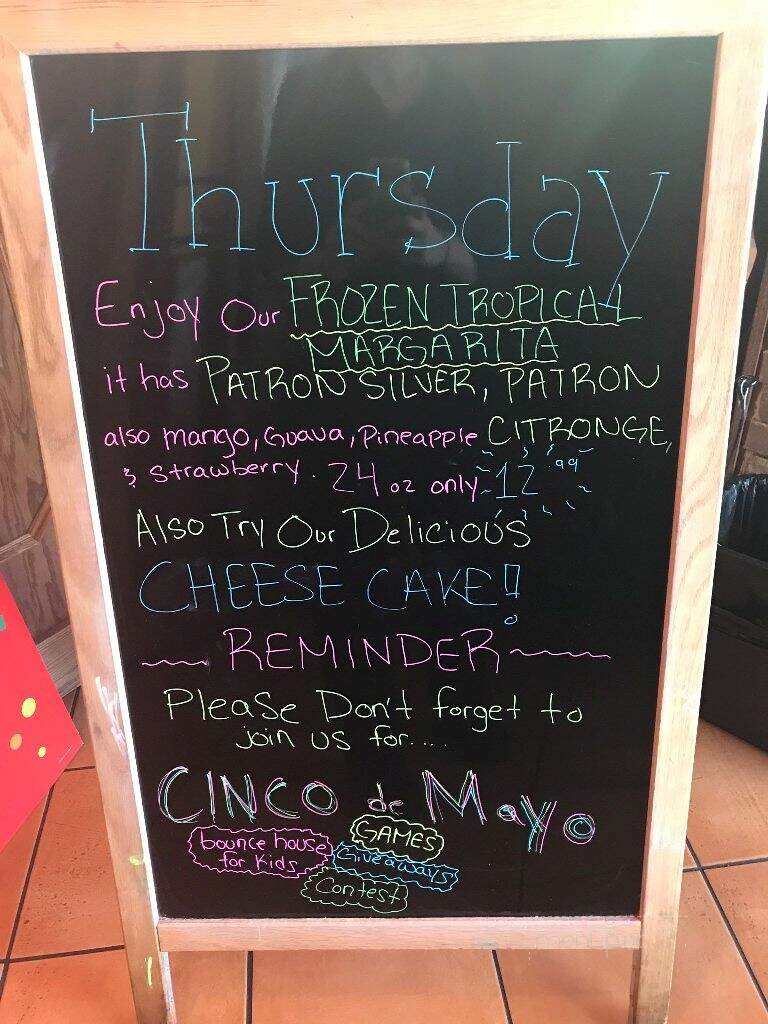 Thursday
Enjoy Our FROZEN TROPICAL
MARGARITA
it has PATRON SILVER, PATRON
also mango, Guava, Pineapple CITRONGE,
& Strawberry. 24 oz only 12.99
Also Try Our Delicious
CHEESE CAKE!
REMINDER
Please Don't forget to
join us for....
CINCO de Mayo
bounce house
for kids
GAMES
Giveaways
Contest